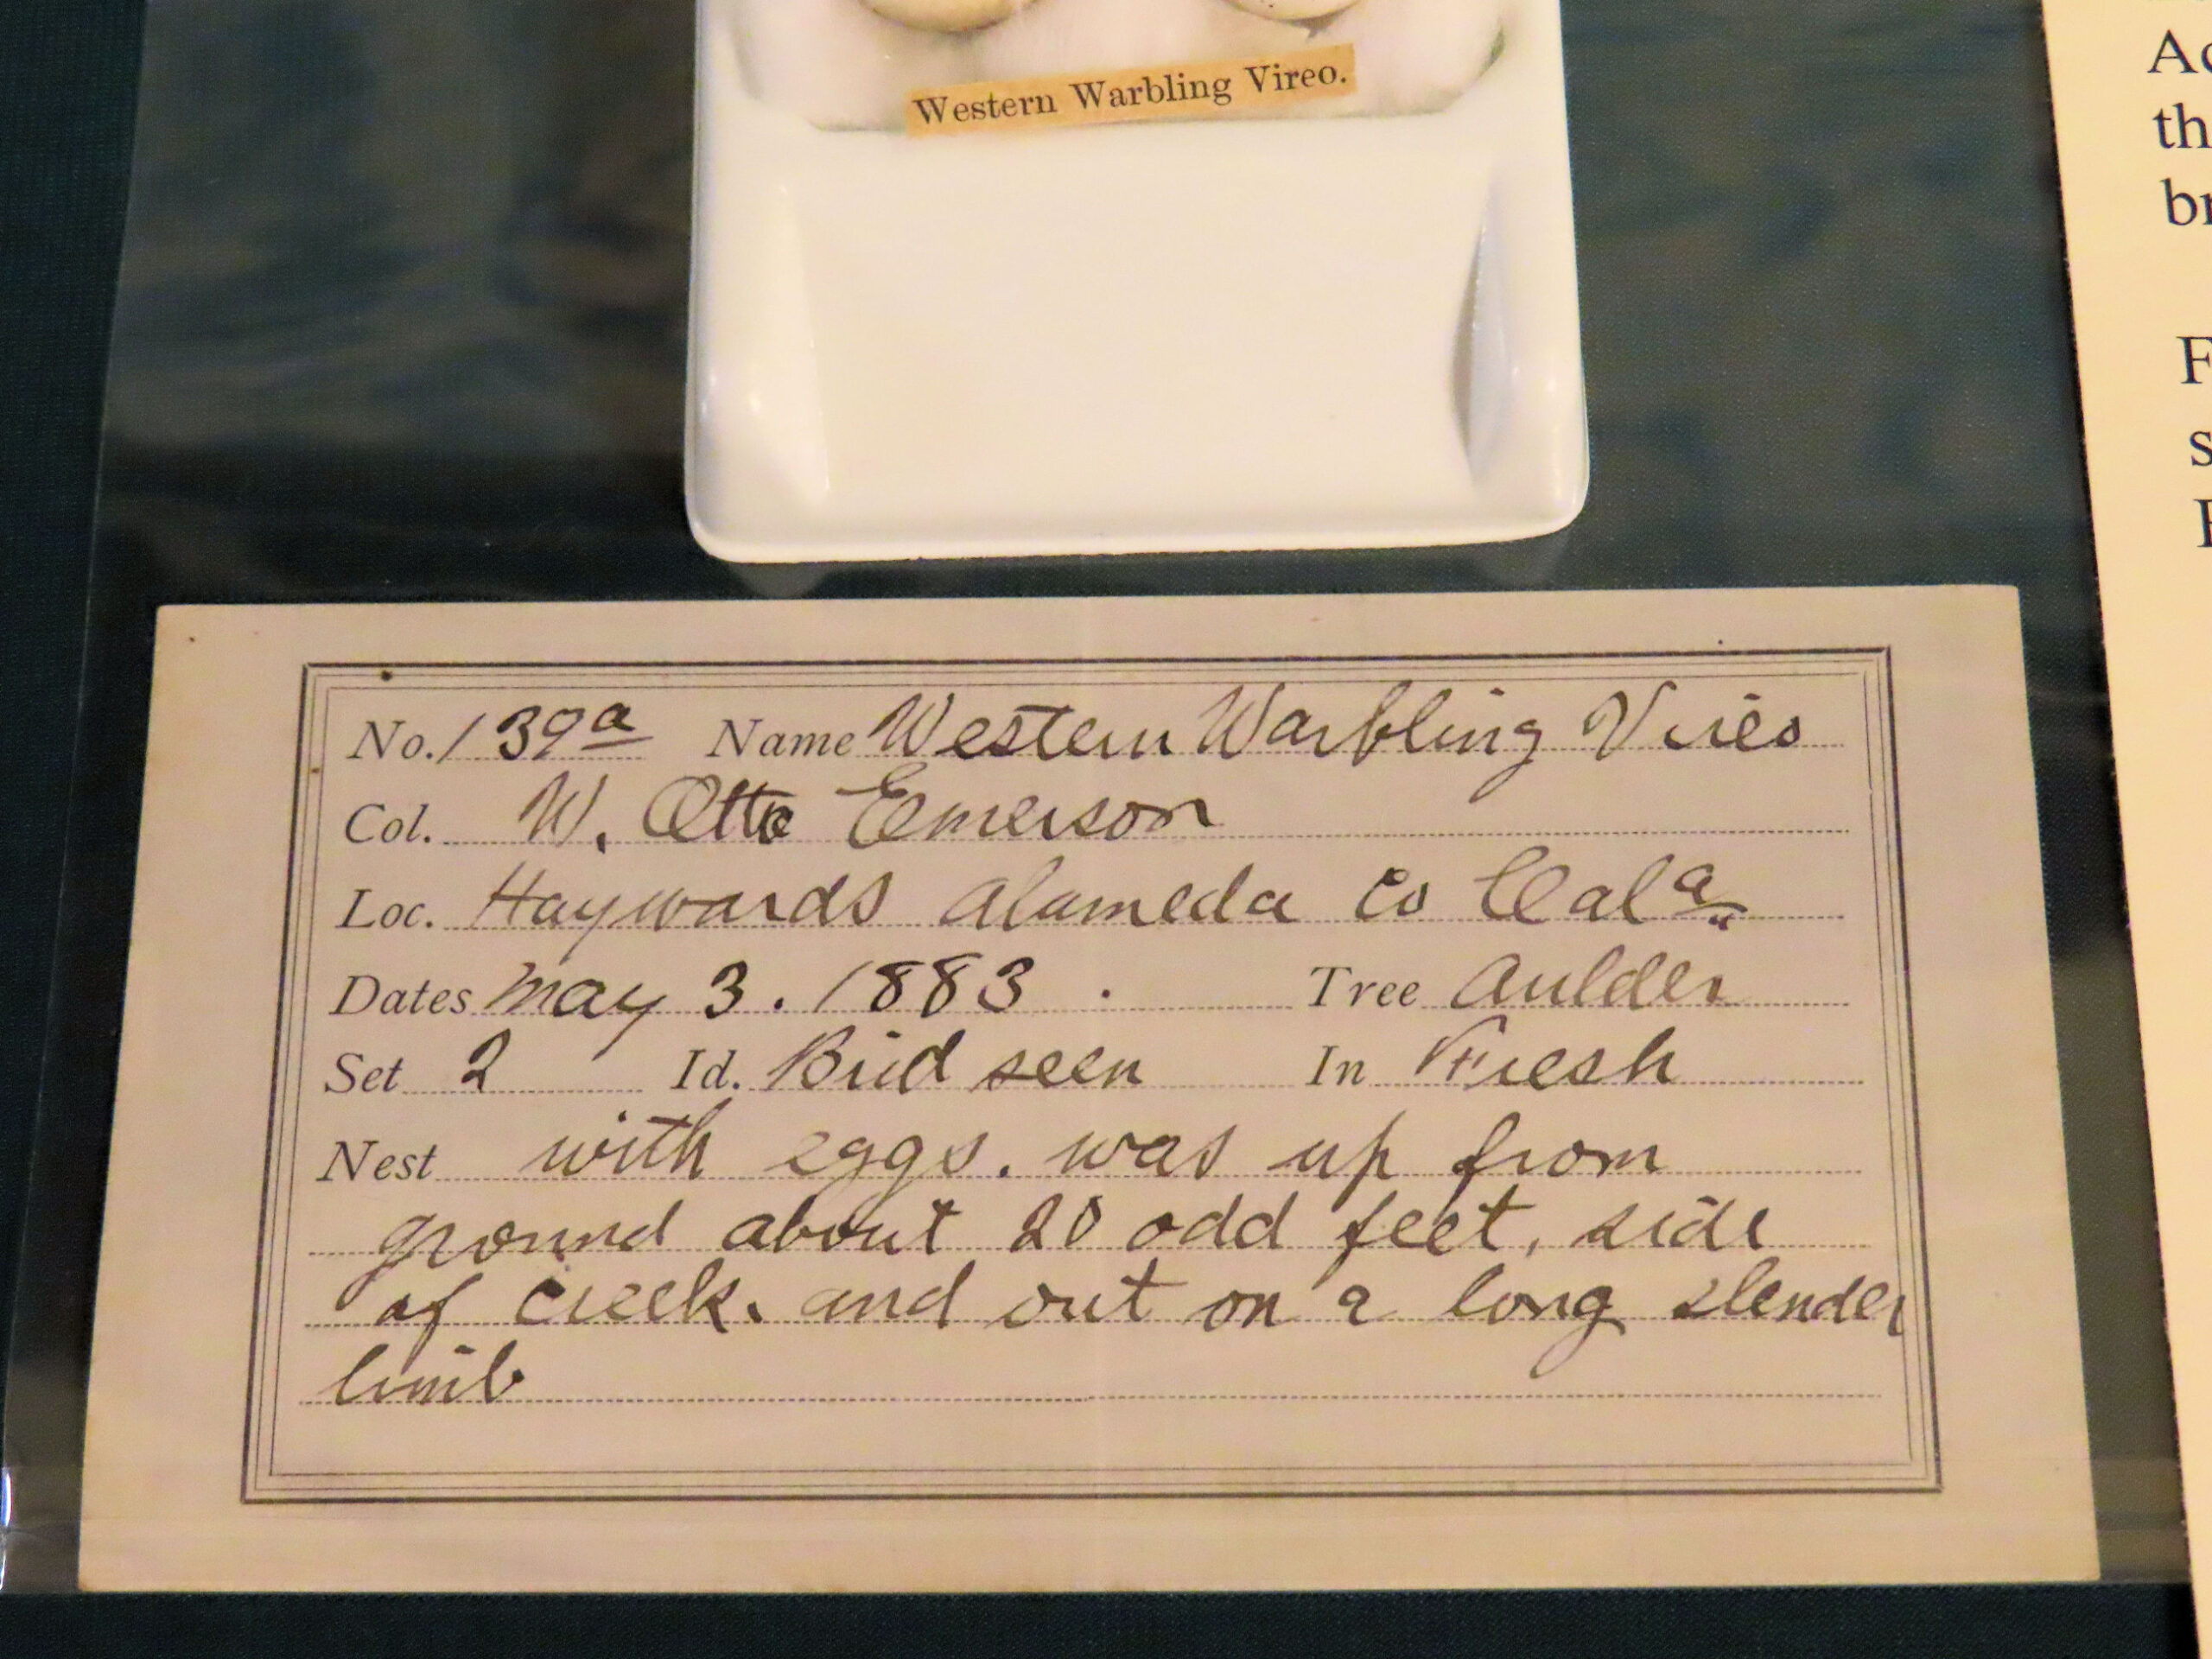 Western Warbling Vireo.
No. 139a Name Western Warbling Vireo
Col. W. Otto Emerson
Loc. Haywards Alameda Co Cala
Dates May 3. 1883 . Tree Aulder
Set 2 Id. Bird seen In Fresh
Nest with eggs. was up from
ground about 20 odd feet, side
of creek. and out on a long slender
limb
Ac
th
br
F
s